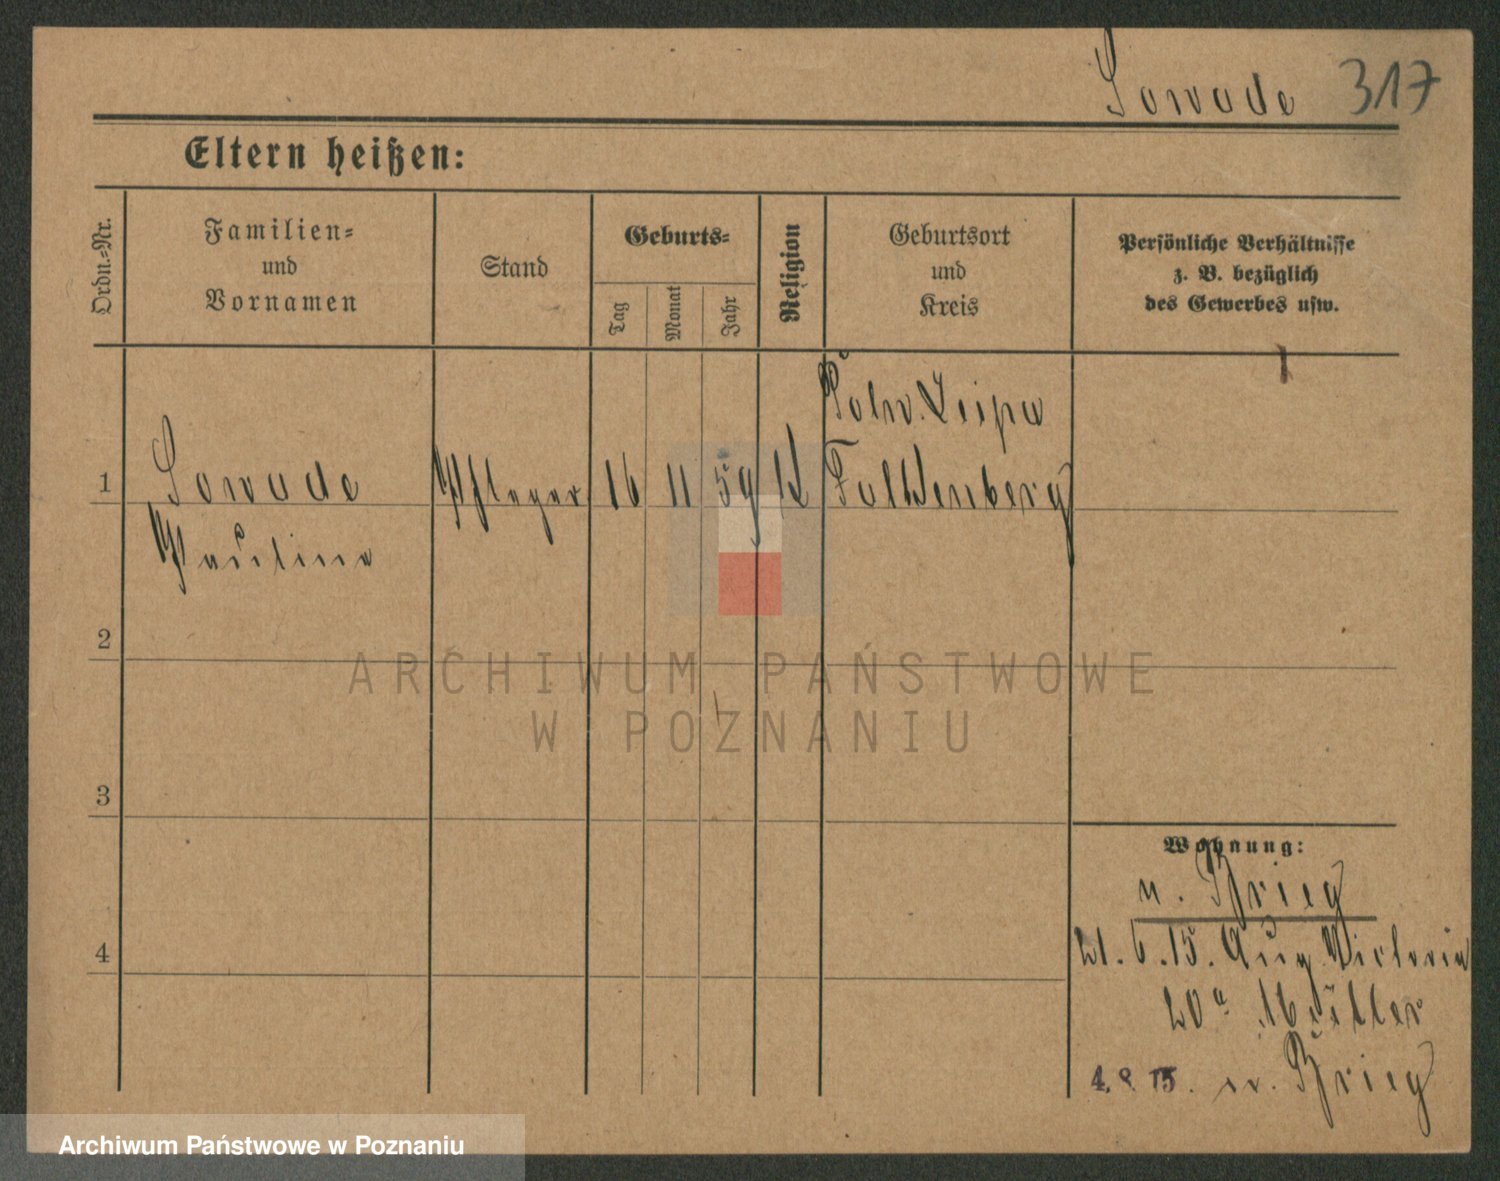 Sowade 317
Eltern heißen:
Ordn.-Nr.
Familien-
und
Vornamen
Stand
Geburts-
Tag
Monat
Jahr
Religion
Geburtsort
und
Kreis
Persönliche Verhältnisse
z. B. bezüglich
des Gewerbes usw.
Poln. Leipe
1 Sowade 16 11 59 k Falkenberg
Pauline
2
3
4
Wohnung:
n. Brieg
21.6.15. Aug. Victoria
20a Müller
4.8.15. n. Brieg
ARCHIWUM PAŃSTWOWE
W POZNANIU
Archiwum Państwowe w Poznaniu